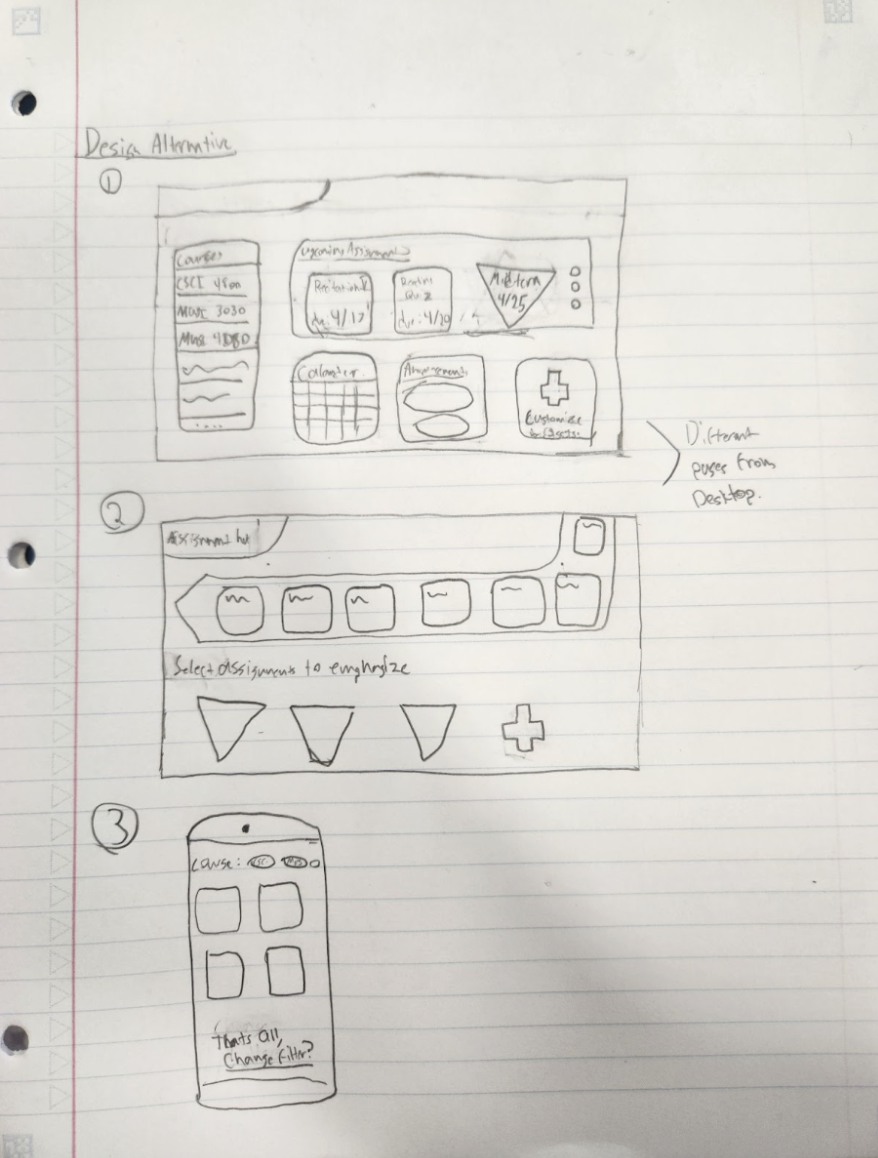 Design Alternative
①
Courses
CSCI 4800
3030
4080
....
Upcoming Assignments
Recitation
due: 4/17
Quiz
due: 4/20
Midterm
4/25
Calander
Announcements
Customize
Different
pages from
Desktop.
②
Assignment hub
Select assignments to emphasize
③
Course:
Thats all,
Change Filter?